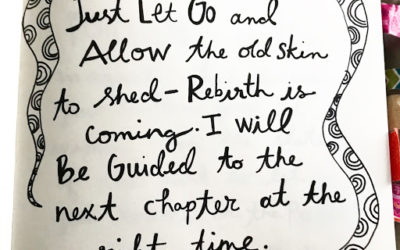 Just Let Go and
Allow the old skin
to shed - Rebirth is
coming. I will
Be Guided to the
next chapter at the
right time.